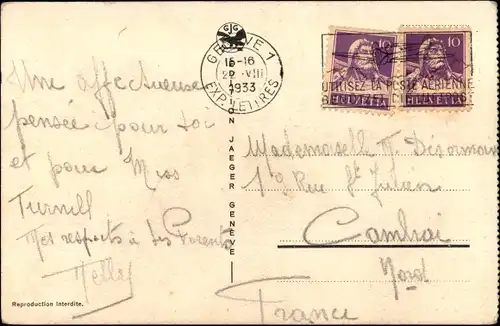 GENÈVE 1
15-16
VIII
1933
EXP. LETTRES
UTILISEZ LA POSTE AÉRIENNE
10
HELVETIA
10
HELVETIA
Une affectueuse
pensée pour toi
et pour Miss
Turnell
Mes respects à tes Parents
Nelly
Reproduction Interdite.
EDITION JAEGER GENEVE
Mademoiselle Désormaux
19 Rue St Julien
Cambrai
Nord
France